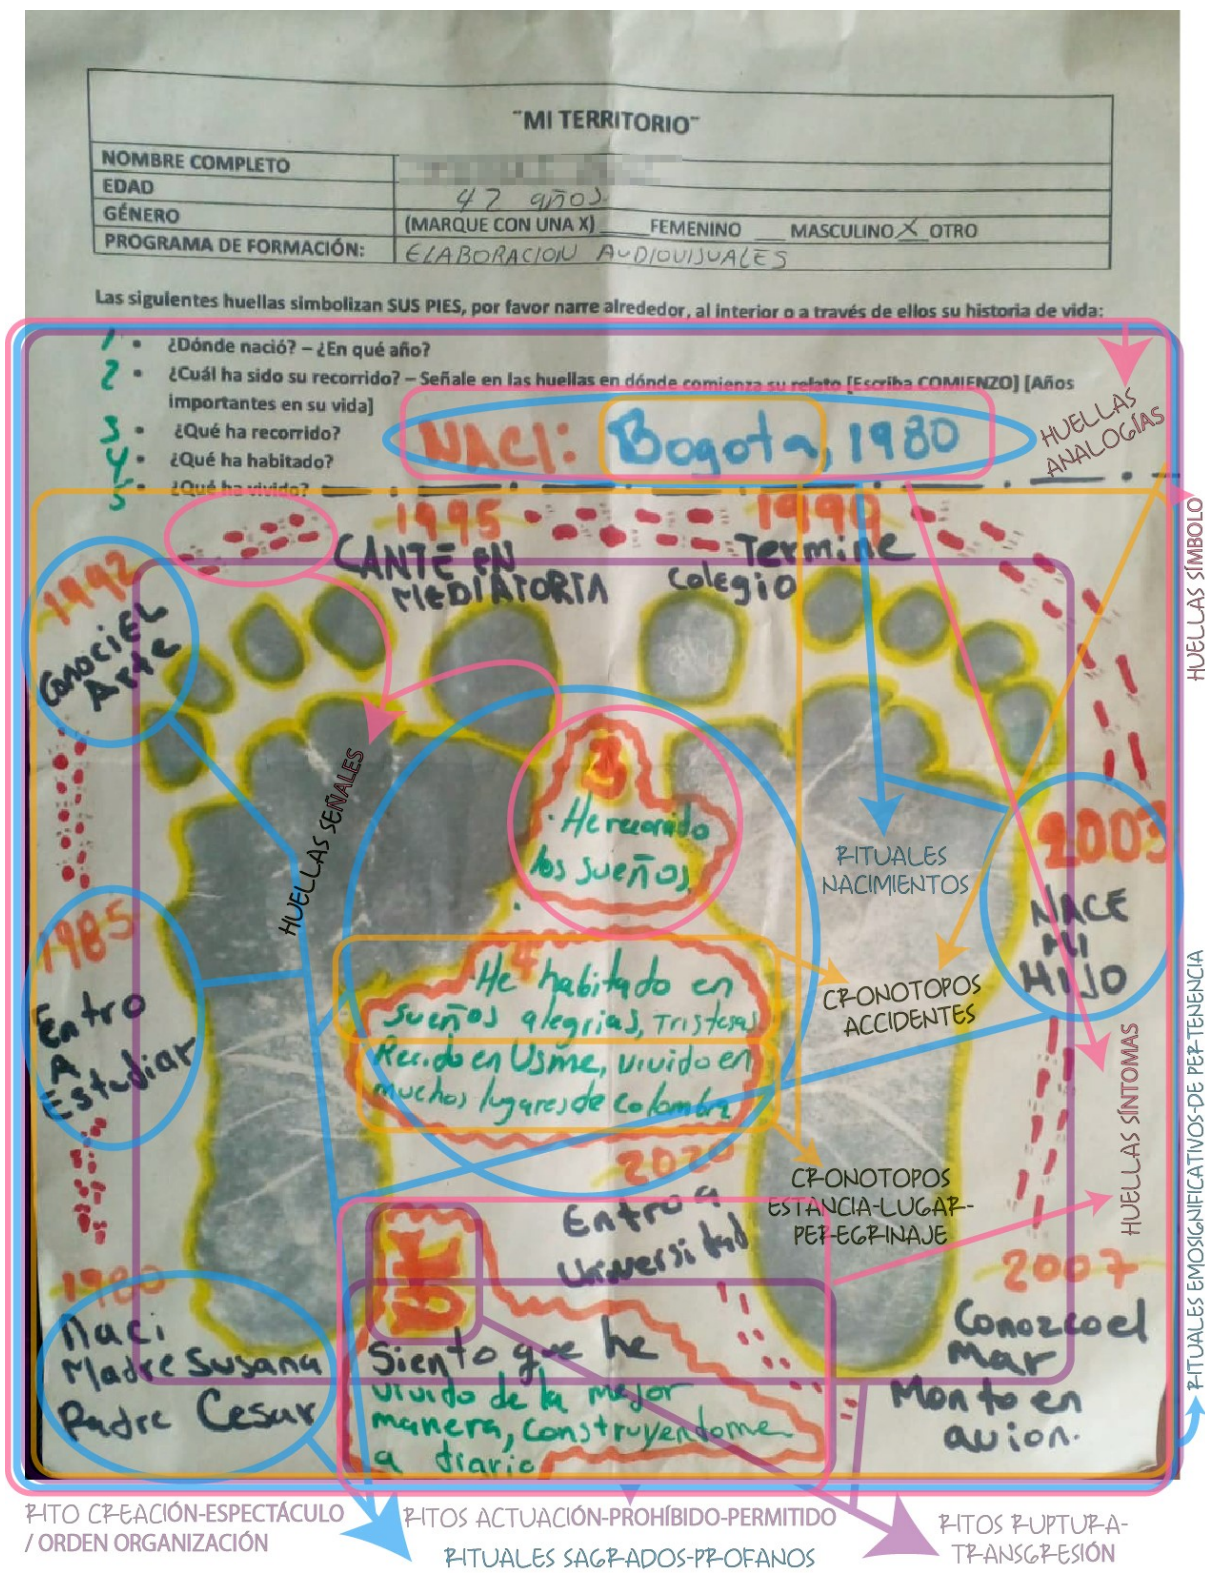 "MI TERRITORIO"
NOMBRE COMPLETO
EDAD
42 años.
GÉNERO
(MARQUE CON UNA X) ___ FEMENINO ___ MASCULINO X OTRO
PROGRAMA DE FORMACIÓN:
ELABORACION AUDIOVISUALES
Las siguientes huellas simbolizan SUS PIES, por favor narre alrededor, al interior o a través de ellos su historia de vida:
1 • ¿Dónde nació? – ¿En qué año?
2 • ¿Cuál ha sido su recorrido? – Señale en las huellas en dónde comienza su relato [Escriba COMIENZO] [Años
importantes en su vida]
3 • ¿Qué ha recorrido?
4 • ¿Qué ha habitado?
5 • ¿Qué ha vivido?
NACI: Bogota, 1980
HUELLAS
ANALOGÍAS
HUELLAS SÍMBOLO
1995
CANTE EN
MEDIATORTA
Termine
colegio
1992
Conoci EL
Arte
HUELLAS SEÑALES
3
He recorrido
los sueños
RITUALES
NACIMIENTOS
2003
NACE
MI
HIJO
1985
Entro
A
Estudiar
4
He habitado en
sueños alegrias, Tristesas
Recido en Usme, vivido en
muchos lugares de colombia
CRONOTOPOS
ACCIDENTES
CRONOTOPOS
ESTANCIA-LUGAR-
PEREGRINAJE
HUELLAS SÍNTOMAS
RITUALES EMOSIGNIFICATIVOS-DE PERTENENCIA
2020
Entro a
universidad
2007
Conozco el
mar
Monto en
avion.
1980
Naci
Madre Susana
Padre Cesar
Siento que he
vivido de la mejor
manera, construyendome
a diario
RITO CREACIÓN-ESPECTÁCULO
/ ORDEN ORGANIZACIÓN
RITOS ACTUACIÓN-PROHÍBIDO-PERMITIDO
RITUALES SAGRADOS-PROFANOS
RITOS RUPTURA-
TRANSGRESIÓN